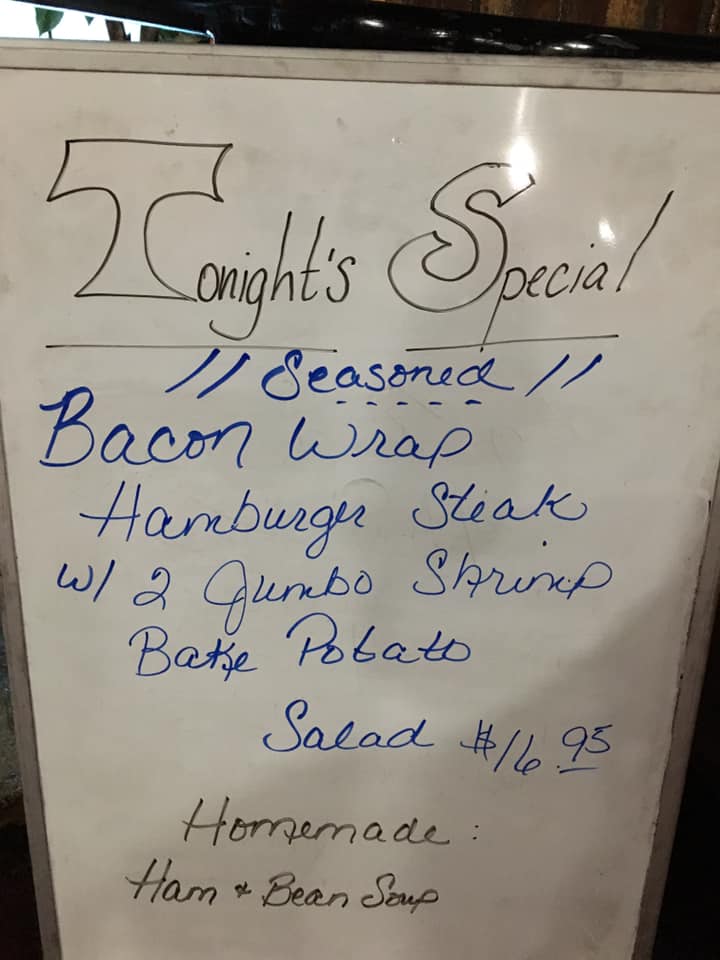 Tonight's Special
// Seasoned //
Bacon Wrap
Hamburger Steak
w/ 2 Jumbo Shrimp
Bake Potato
Salad $16.95
Homemade:
Ham & Bean Soup